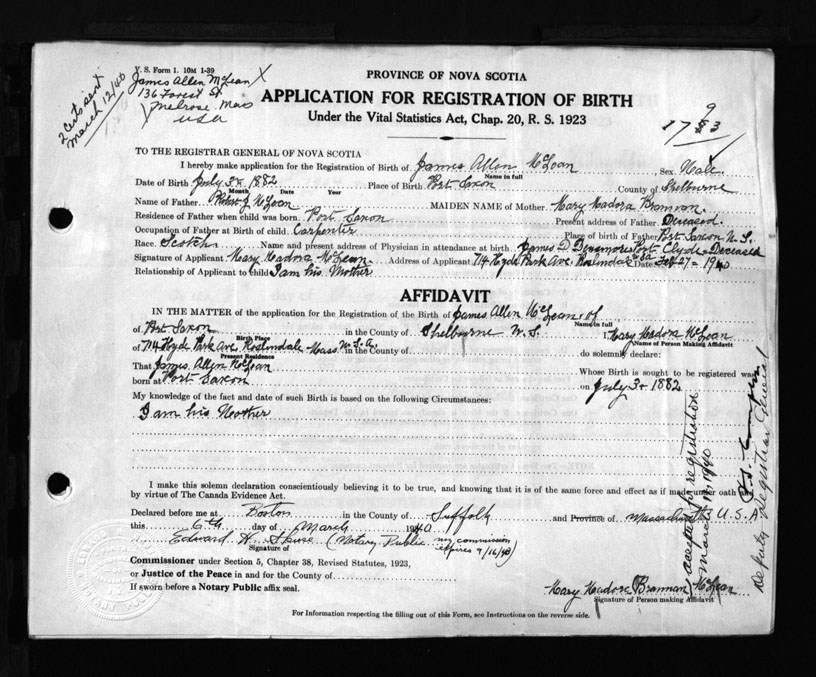 V. S. Form 1. 10M 1-39
James Allen McLean X
136 Forest St
Melrose, Mass
USA
2 certs sent
March 12/40
PROVINCE OF NOVA SCOTIA
APPLICATION FOR REGISTRATION OF BIRTH
Under the Vital Statistics Act, Chap. 20, R. S. 1923
TO THE REGISTRAR GENERAL OF NOVA SCOTIA
I hereby make application for the Registration of Birth of James Allen McLean, Sex Male
Name in full
Date of Birth July 3rd 1882 Place of Birth Port Saxon County of Shelburne
Month Date Year
Name of Father Robert J McLean MAIDEN NAME of Mother Mary Madora Brannan
Residence of Father when child was born Port Saxon Present address of Father Deceased
Occupation of Father at Birth of child Carpenter Place of birth of Father Port Saxon N. S.
Race Scotch Name and present address of Physician in attendance at birth James D Port Clyde Deceased
Signature of Applicant Mary Madora McLean Address of Applicant 714 Hyde Park Ave. Roslindale Date Feb 27 1940
Relationship of Applicant to child I am his Mother
AFFIDAVIT
IN THE MATTER of the application for the Registration of the Birth of James Allen McLean, of
Name in full
of Port Saxon in the County of Shelbourne N. S. I Mary Madora McLean
Birth Place Name of Person Making Affidavit
of 714 Hyde Park Ave Roslindale Mass U. S. A. in the County of do solemnly declare:
Present Residence
That James Allen McLean Whose Birth is sought to be registered was
born at Port Saxon on July 3rd 1882
My knowledge of the fact and date of such Birth is based on the following Circumstances:
I am his Mother
I make this solemn declaration conscientiously believing it to be true, and knowing that it is of the same force and effect as if made under oath and
by virtue of The Canada Evidence Act.
Declared before me at Boston in Suffolk and Province of Massachusetts U.S.A
this 6th day of March 1940
Edward H. (Notary Public my commission
expires 7/16/43)
Signature of
Commissioner under Section 5, Chapter 38, Revised Statutes, 1923,
or Justice of the Peace in and for the County of
If sworn before a Notary Public affix seal.
Mary Madora (Brannan) McLean
Signature of Person making Affidavit
For Information respecting the filling out of this Form, see Instructions on the reverse side.
accepted for registration
March 11/1940
Deputy Registrar General